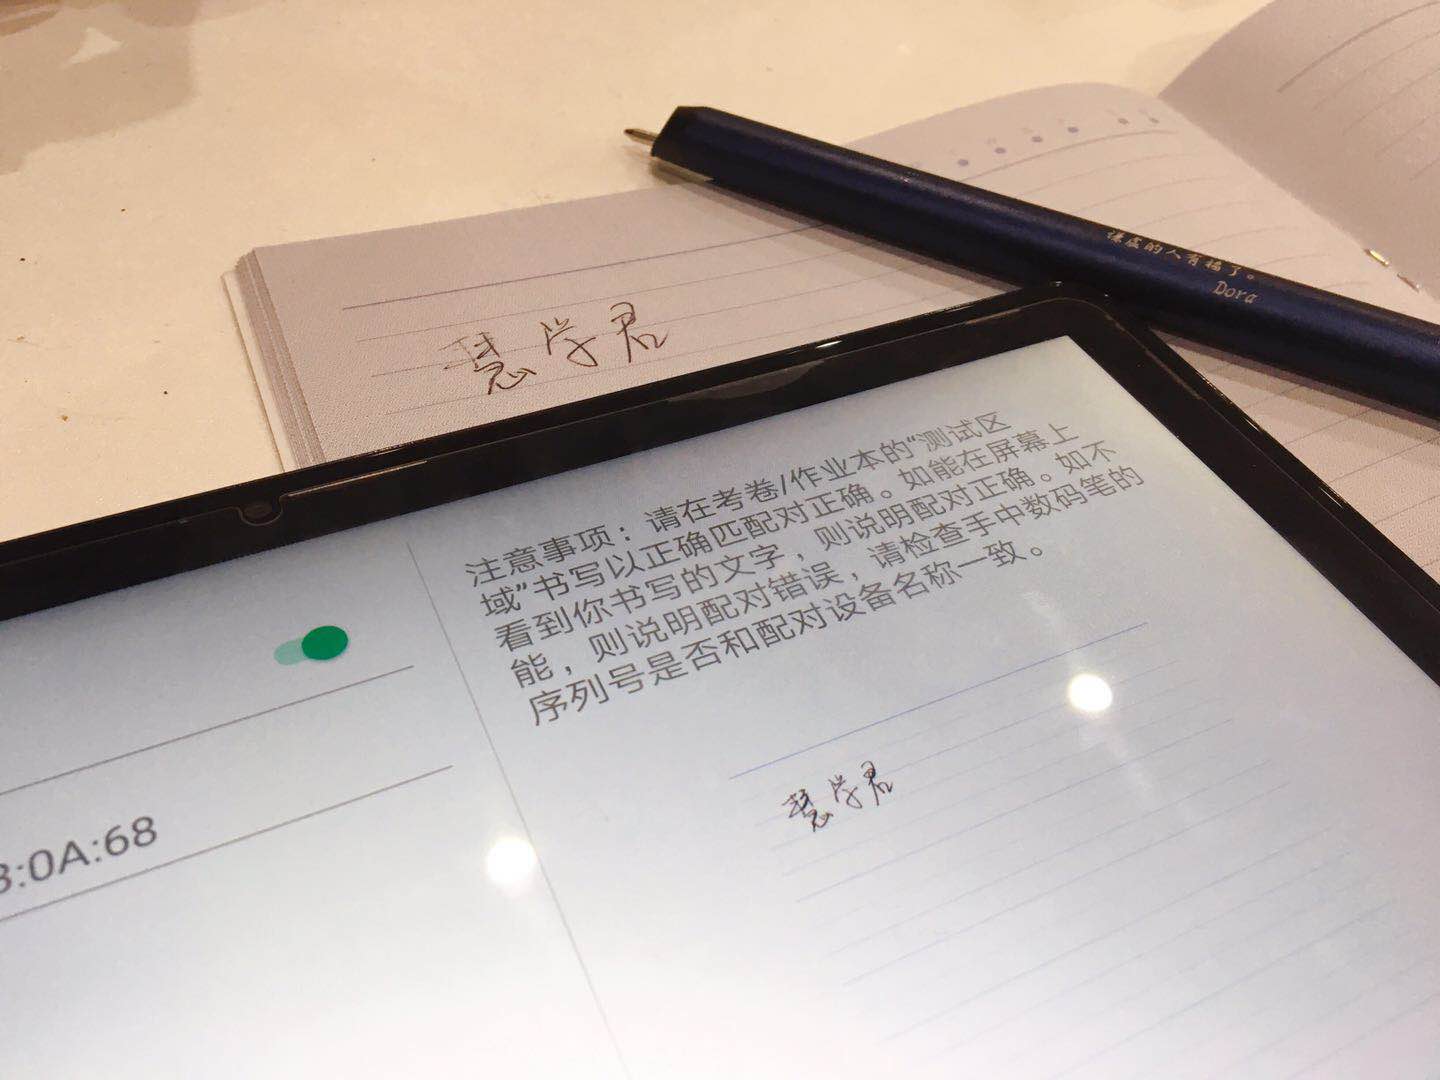 谦虚的人有福了。
Dora
慧学君
注意事项：请在考卷/作业本的“测试区
域”书写以正确匹配对正确。如能在屏幕上
看到你书写的文字，则说明配对正确。如不
能，则说明配对错误，请检查手中数码笔的
序列号是否和配对设备名称一致。
:0A:68
慧学君